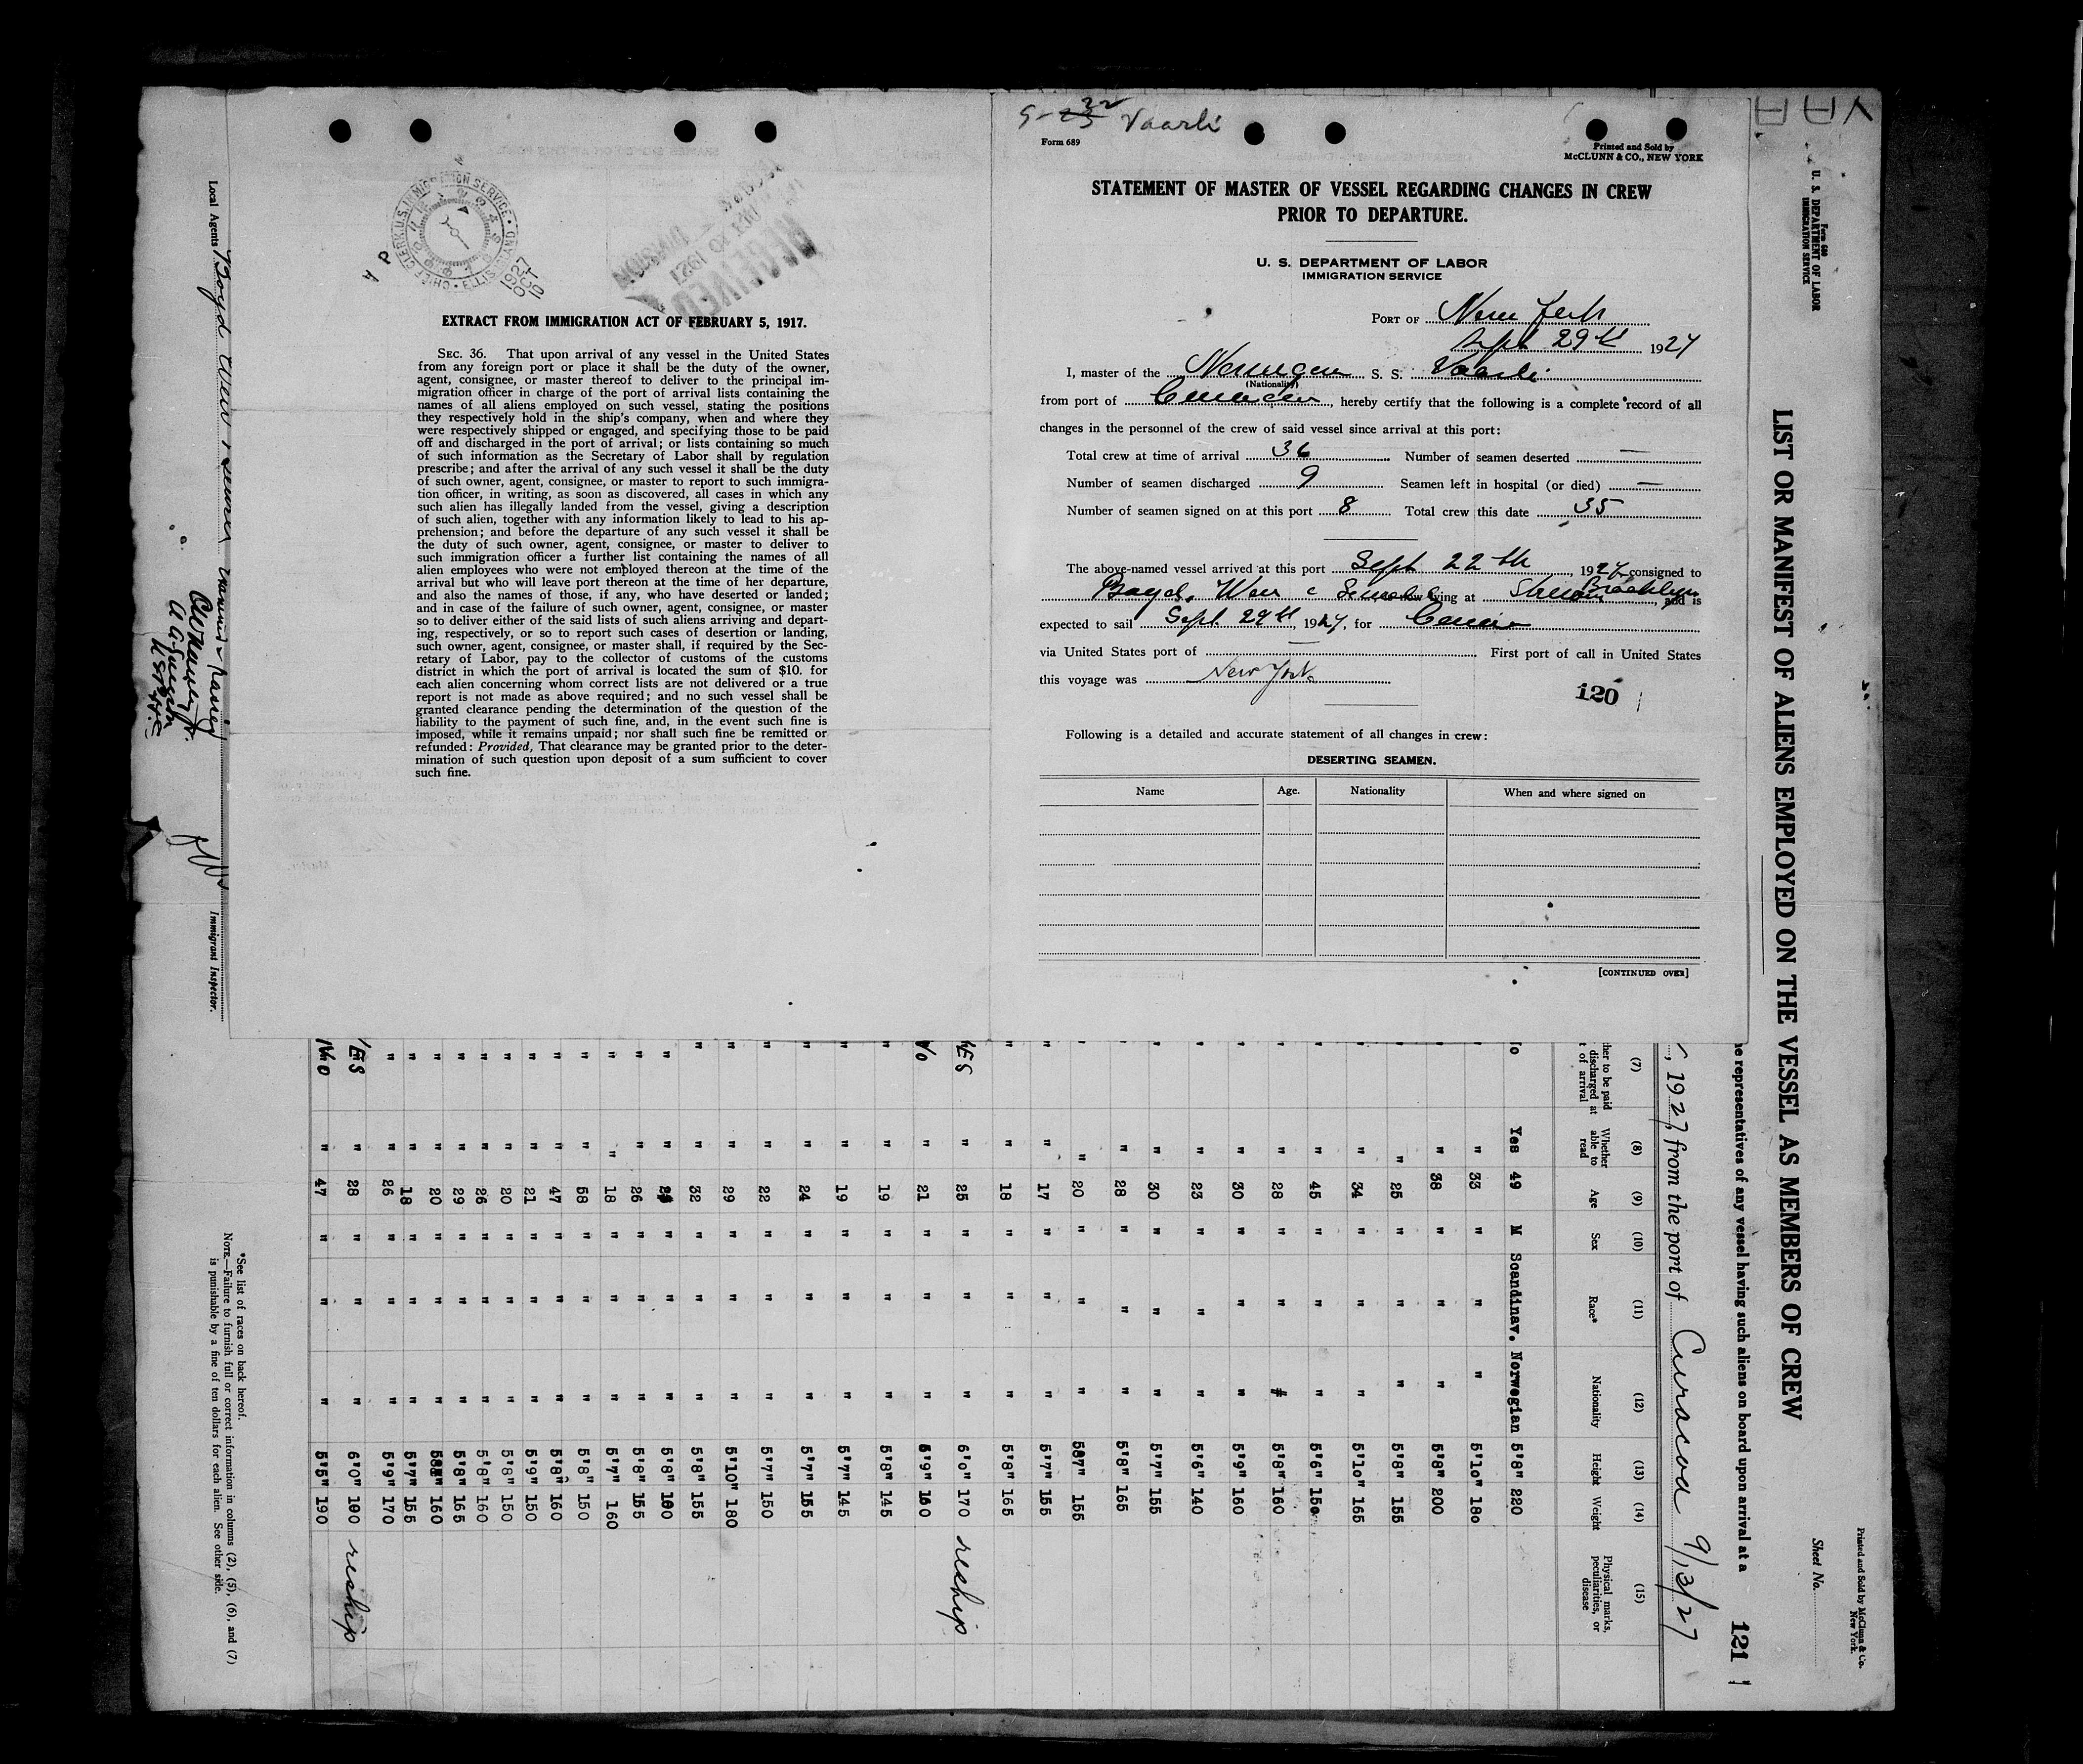 Vaarli
Form 689
Printed and Sold by
McCLUNN & CO., NEW YORK
STATEMENT OF MASTER OF VESSEL REGARDING CHANGES IN CREW
PRIOR TO DEPARTURE.
U. S. DEPARTMENT OF LABOR
IMMIGRATION SERVICE
PORT OF New York
Sept 29th 1927
I, master of the Norwegian S. S. Vaarli
(Nationality)
from port of , hereby certify that the following is a complete record of all
changes in the personnel of the crew of said vessel since arrival at this port:
Total crew at time of arrival 36 Number of seamen deserted —
Number of seamen discharged 9 Seamen left in hospital (or died) —
Number of seamen signed on at this port 8 Total crew this date 35
The above-named vessel arrived at this port Sept 22th, 1927 consigned to
Boyd, Weir & now lying at Brooklyn, and is
expected to sail Sept 29th, 1927, for
via United States port of — First port of call in United States
this voyage was New York
120
Following is a detailed and accurate statement of all changes in crew:
DESERTING SEAMEN.
Name Age. Nationality When and where signed on
[CONTINUED OVER]
CHIEF CLERK U.S. IMMIGRATION SERVICE • ELLIS ISLAND
1927
OCT
RECEIVED
DIVISION
EXTRACT FROM IMMIGRATION ACT OF FEBRUARY 5, 1917.
SEC. 36. That upon arrival of any vessel in the United States
from any foreign port or place it shall be the duty of the owner,
agent, consignee, or master thereof to deliver to the principal im-
migration officer in charge of the port of arrival lists containing the
names of all aliens employed on such vessel, stating the positions
they respectively hold in the ship's company, when and where they
were respectively shipped or engaged, and specifying those to be paid
off and discharged in the port of arrival; or lists containing so much
of such information as the Secretary of Labor shall by regulation
prescribe; and after the arrival of any such vessel it shall be the duty
of such owner, agent, consignee, or master to report to such immigra-
tion officer, in writing, as soon as discovered, all cases in which any
such alien has illegally landed from the vessel, giving a description
of such alien, together with any information likely to lead to his ap-
prehension; and before the departure of any such vessel it shall be
the duty of such owner, agent, consignee, or master to deliver to
such immigration officer a further list containing the names of all
alien employees who were not employed thereon at the time of the
arrival but who will leave port thereon at the time of her departure,
and also the names of those, if any, who have deserted or landed;
and in case of the failure of such owner, agent, consignee, or master
so to deliver either of the said lists of such aliens arriving and depart-
ing, respectively, or so to report such cases of desertion or landing,
such owner, agent, consignee, or master shall, if required by the Sec-
retary of Labor, pay to the collector of customs of the customs
district in which the port of arrival is located the sum of $10. for
each alien concerning whom correct lists are not delivered or a true
report is not made as above required; and no such vessel shall be
granted clearance pending the determination of the question of the
liability to the payment of such fine, and, in the event such fine is
imposed, while it remains unpaid; nor shall such fine be remitted or
refunded: Provided, That clearance may be granted prior to the deter-
mination of such question upon deposit of a sum sufficient to cover
such fine.
Printed and Sold by McClunn & Co.
New York.
Form 680
U. S. DEPARTMENT OF LABOR
IMMIGRATION SERVICE
Sheet No.
LIST OR MANIFEST OF ALIENS EMPLOYED ON THE VESSEL AS MEMBERS OF CREW
e representatives of any vessel having such aliens on board upon arrival at a 121
, 1927, from the port of Curacoa 9/13/27
(7) (8) (9) (10) (11) (12) (13) (14) (15)
her to be paid
discharged at
t of arrival
Whether
able to
read
Age
Sex
Race*
Nationality
Height
Weight
Physical marks,
peculiarities, or
disease
o Yes 49 M Scandinav. Norwegian 5'8" 220
" " 33 " " " 5'10" 180
" " 38 " " " 5'8" 200
" " 25 " " " 5'8" 155
" " 34 " " " 5'10" 165
" " 45 " " " 5'6" 150
" " 28 " " " 5'8" 160
" " 30 " " " 5'9" 160
" " 23 " " " 5'6" 140
" " 30 " " " 5'7" 155
" " 28 " " " 5'8" 165
" " 20 " " " 5'7" 155
" " 17 " " " 5'7" 155
" " 18 " " " 5'8" 165
YES " 25 " " " 6'0" 170 reship
No " 21 " " " 5'9" 160
" " 19 " " " 5'8" 145
" " 19 " " " 5'7" 145
" " 24 " " " 5'7" 155
" " 22 " " " 5'7" 150
" " 29 " " " 5'10" 180
" " 32 " " " 5'8" 155
" " " " " 5'8"
" " 26 " " " 5'8" 155
" " 18 " " " 5'7" 160
" " 58 " " " 5'8" 150
" " 47 " " " 5'8" 160
" " 21 " " " 5'9" 150
" " 20 " " " 5'8" 150
" " 26 " " " 5'8" 160
" " 29 " " " 5'8" 165
" " 20 " " " 160
" " 18 " " " 5'7" 155
" " 26 " " " 5'9" 170
YES " 28 " " " 6'0" 190 reship
No " 47 " " " 5'5" 190
*See list of races on back hereof.
NOTE.—Failure to furnish full or correct information in columns (2), (5), (6), and (7)
is punishable by a fine of ten dollars for each alien. See other side.
Local Agents Boyd Weir
Immigrant Inspector.